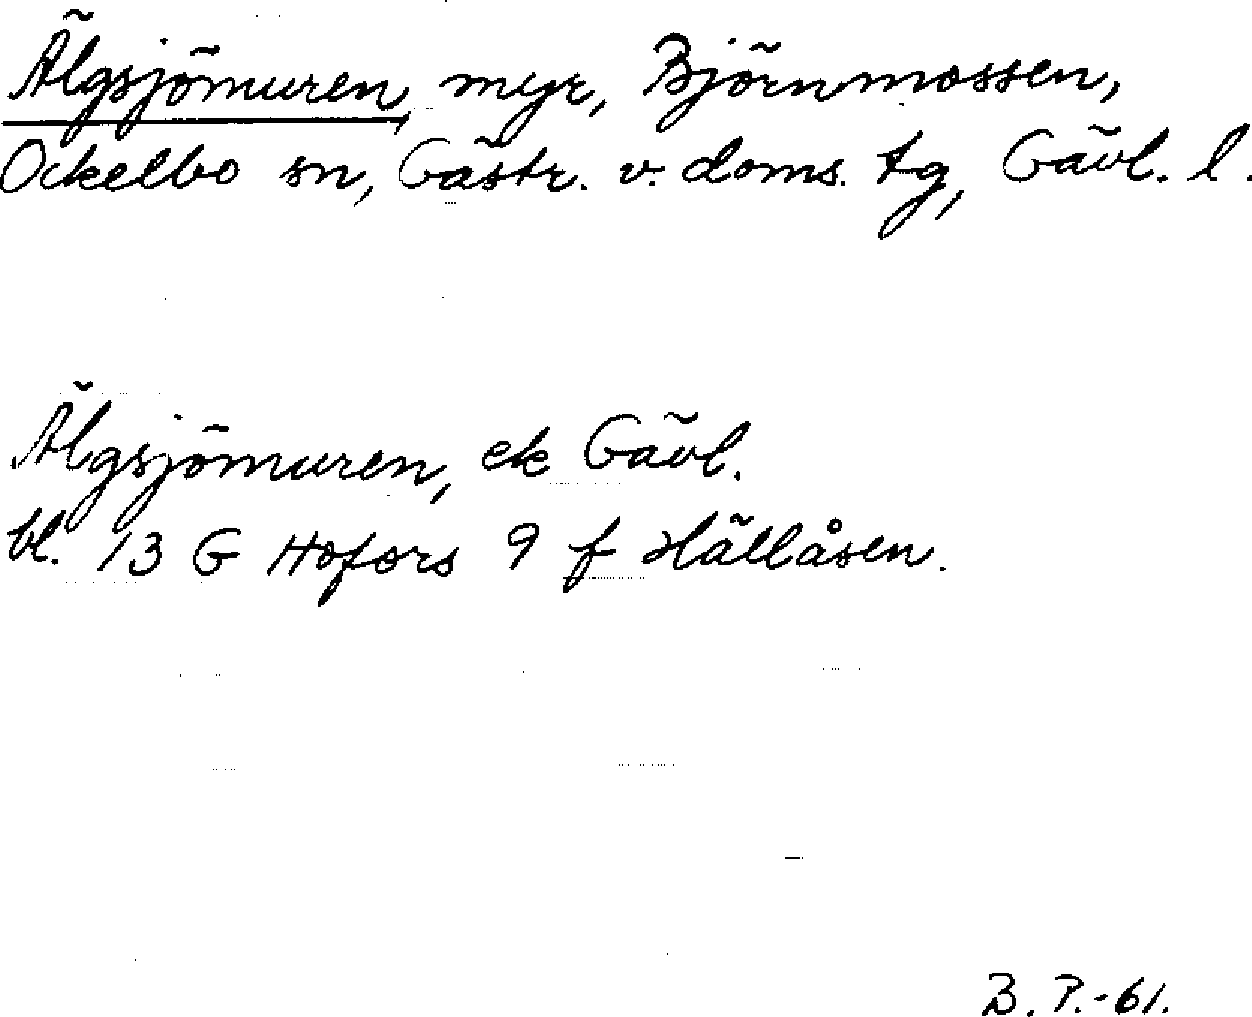 Älgsjömuren, myr, Björnmossen,
Ockelbo sn, Gästr. v. doms. tg, Gävl. l.
Älgsjömuren, ek Gävl.
bl. 13 G Hofors 9 f Hällåsen.
B. P.-61.